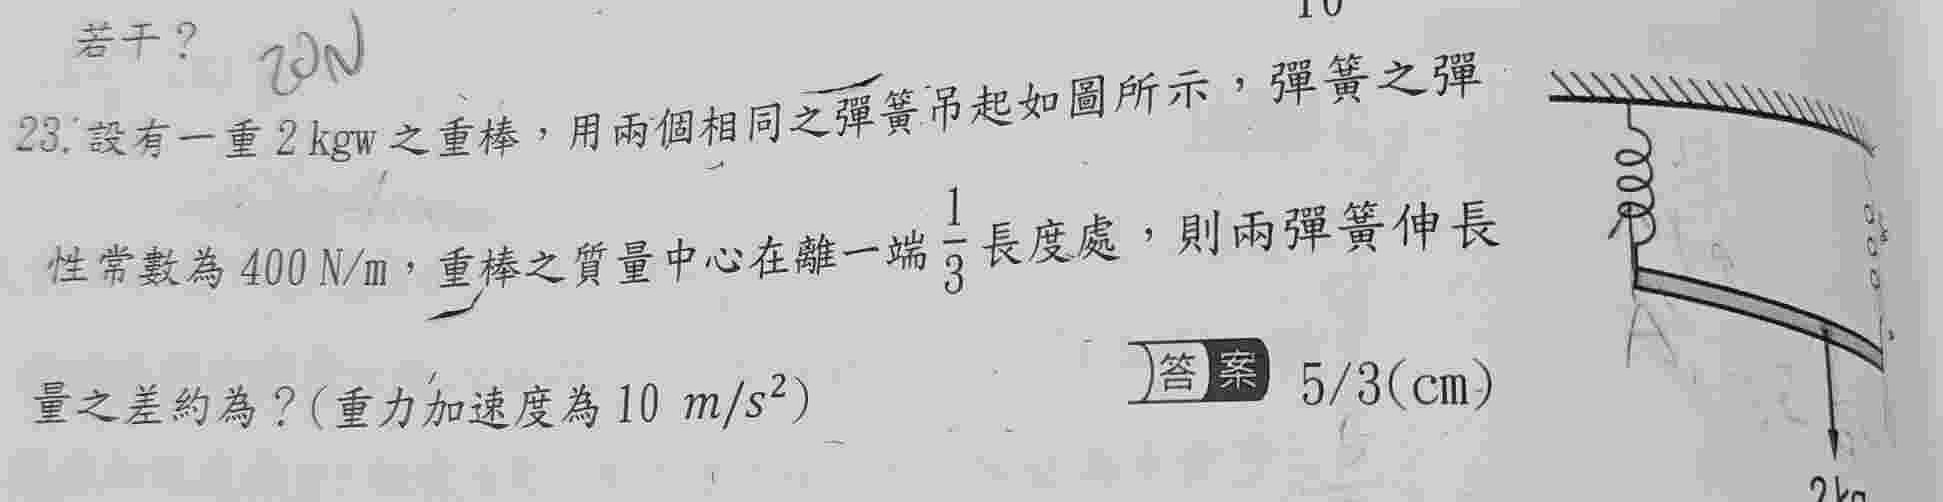 10
若干？ 20N
23.設有一重 2 kgw 之重棒，用兩個相同之彈簧吊起如圖所示，彈簧之彈
性常數為 400 N/m，重棒之質量中心在離一端 1/3 長度處，則兩彈簧伸長
量之差約為？(重力加速度為 10 m/s²)
答案 5/3(cm)
A